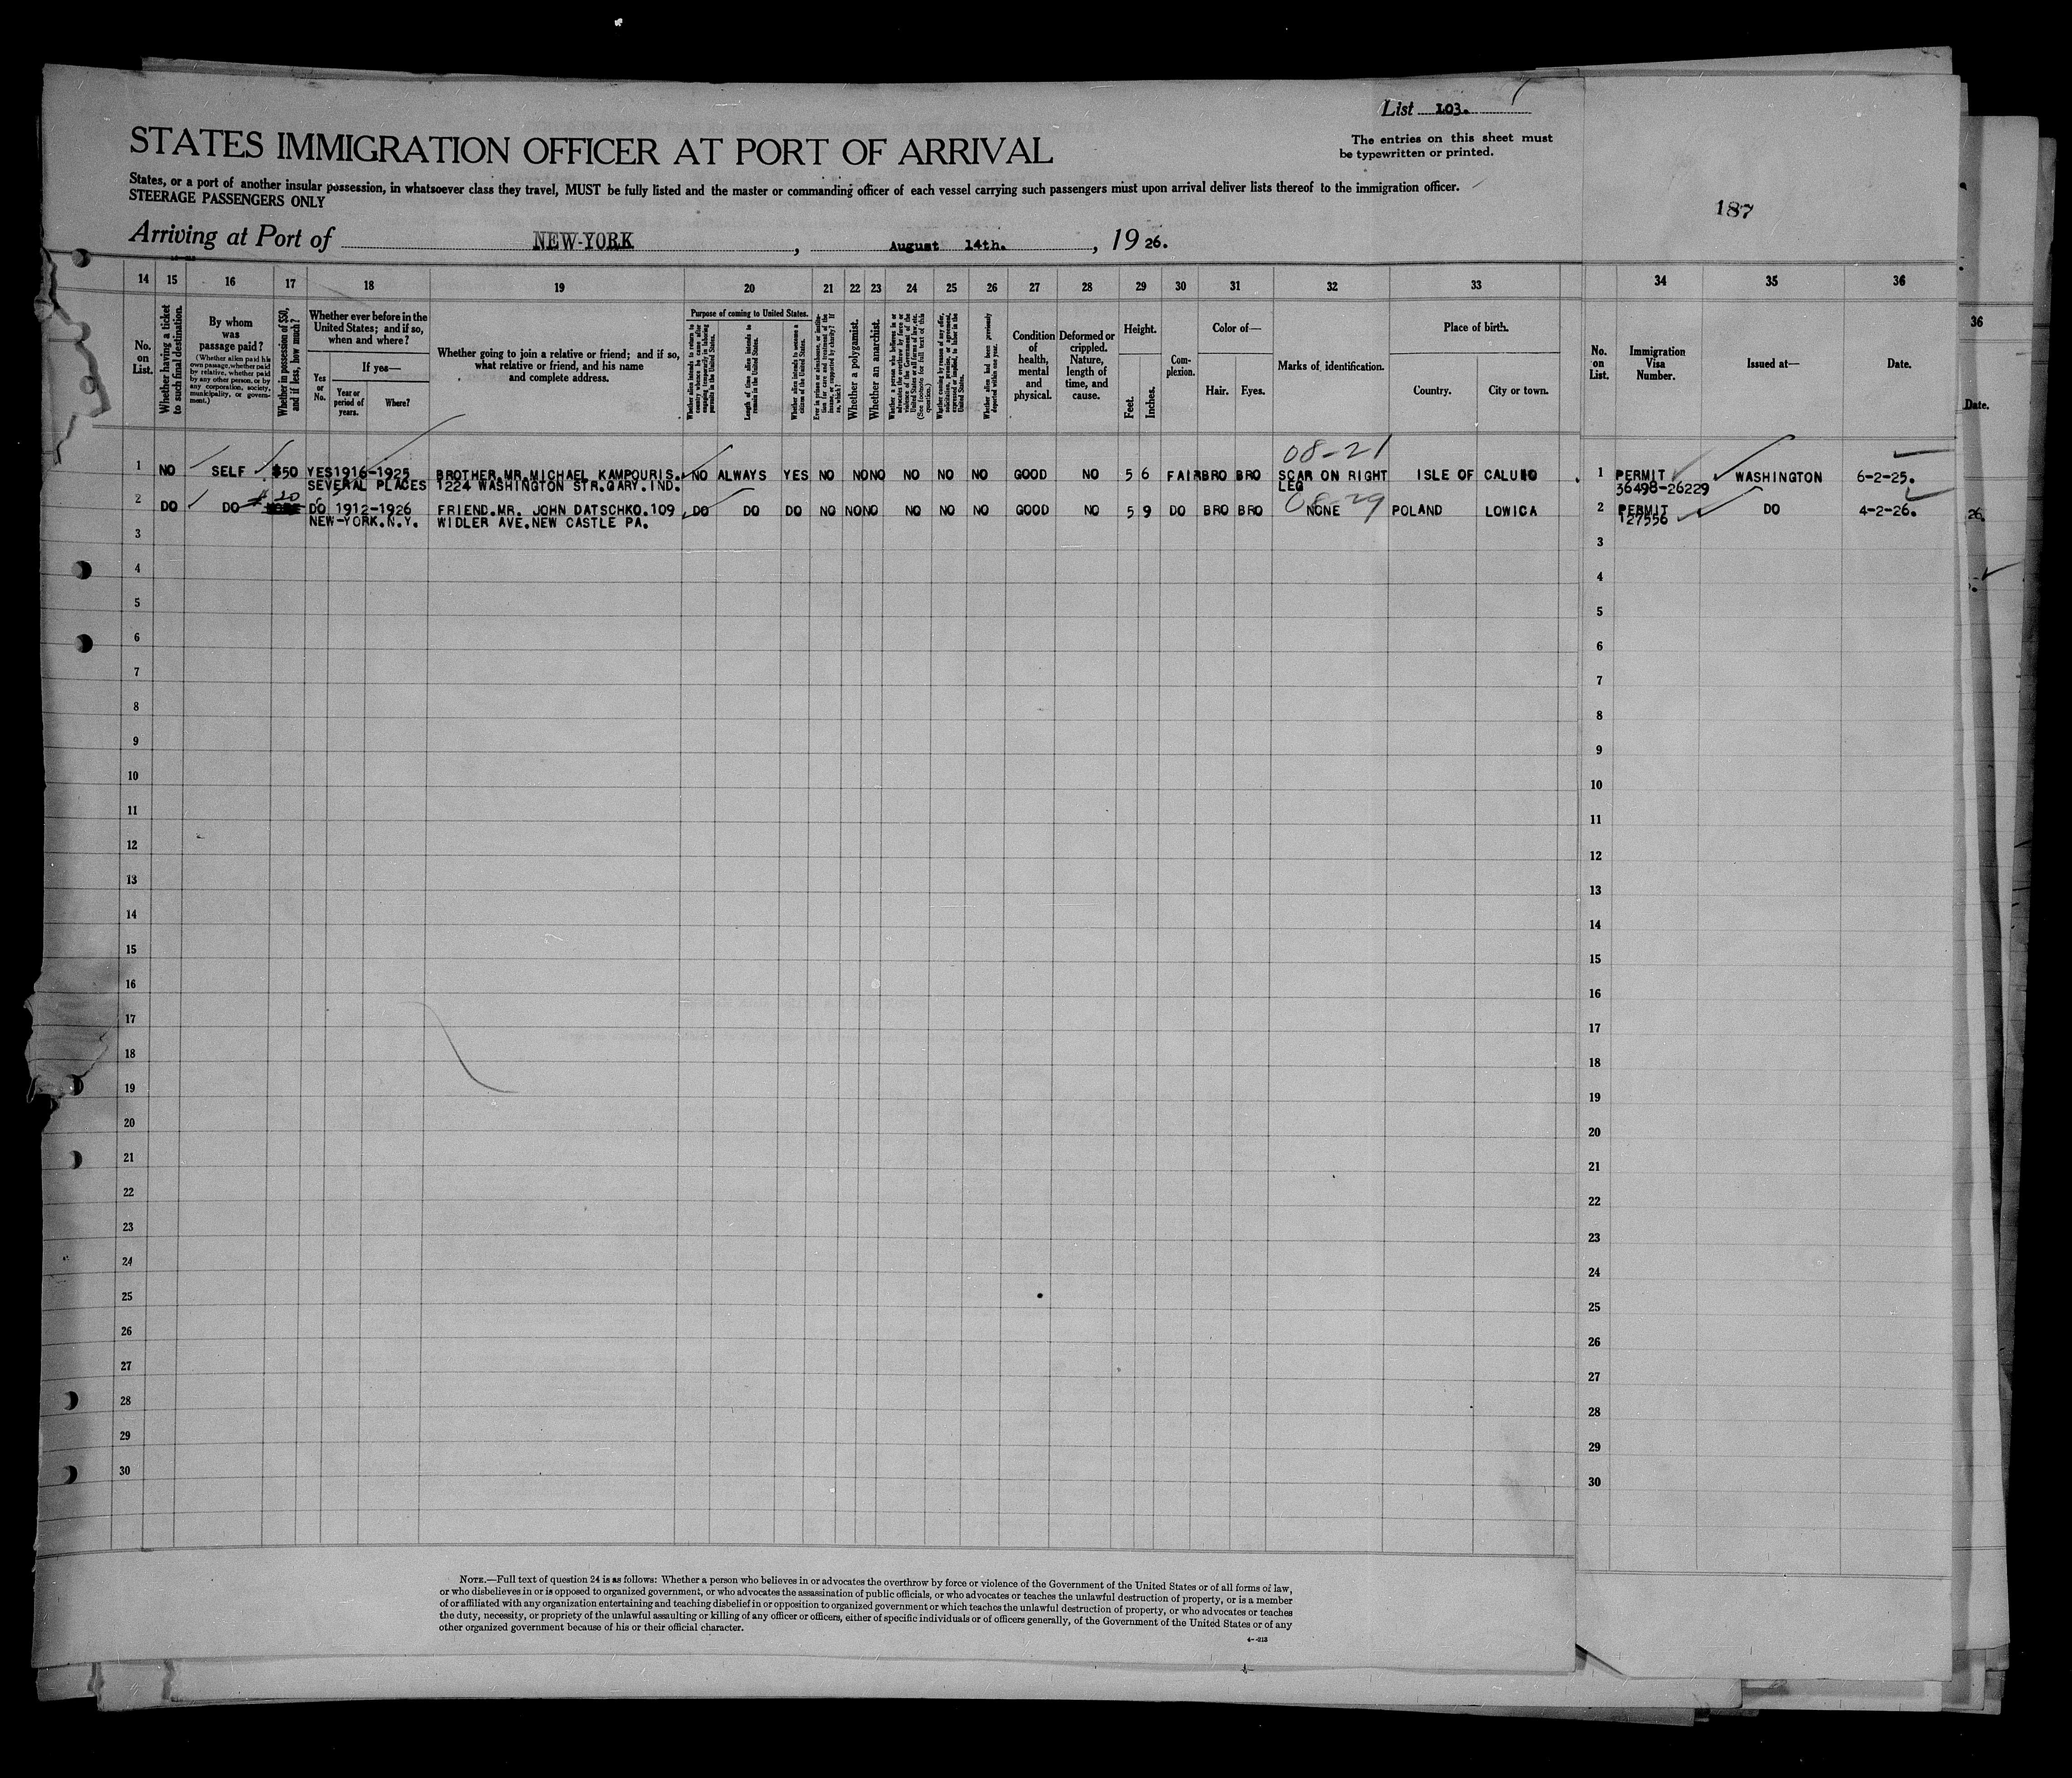 List 103.
The entries on this sheet must
be typewritten or printed.
STATES IMMIGRATION OFFICER AT PORT OF ARRIVAL
States, or a port of another insular possession, in whatsoever class they travel, MUST be fully listed and the master or commanding officer of each vessel carrying such passengers must upon arrival deliver lists thereof to the immigration officer.
STEERAGE PASSENGERS ONLY
187
Arriving at Port of NEW-YORK, August 14th., 1926.
14 15 16 17 18 19 20 21 22 23 24 25 26 27 28 29 30 31 32 33 34 35 36
No. on List.
Whether having a ticket to such final destination.
By whom was passage paid?
(Whether alien paid his own passage, whether paid by relative, whether paid by any other person, or by any corporation, society, municipality, or government.)
Whether in possession of $50, and if less, how much?
Whether ever before in the United States; and if so, when and where?
Yes or No.
If yes—
Year or period of years.
Where?
Whether going to join a relative or friend; and if so, what relative or friend, and his name and complete address.
Purpose of coming to United States.
Length of time alien intends to remain in the United States.
Whether alien intends to become a citizen of the United States.
Whether a polygamist.
Whether an anarchist.
Condition of health, mental and physical.
Deformed or crippled. Nature, length of time, and cause.
Height.
Feet.
Inches.
Complexion.
Color of—
Hair.
Eyes.
Marks of identification.
Place of birth.
Country.
City or town.
No. on List.
Immigration Visa Number.
Issued at—
Date.
36
Date.
08-21
1 NO SELF $50 YES 1916-1925 BROTHER.MR.MICHAEL KAMPOURIS. NO ALWAYS YES NO NO NO NO NO NO GOOD NO 5 6 FAIR BRO BRO SCAR ON RIGHT ISLE OF 1 PERMIT WASHINGTON 6-2-25.
SEVERAL PLACES 1224 WASHINGTON STR.GARY.IND. LEG 36498-26229
08-29
2 DO DO 20 DO 1912-1926 FRIEND.MR. JOHN DATSCHKO.109 DO DO DO NO NO NO NO NO NO GOOD NO 5 9 DO BRO BRO NONE POLAND LOWICA 2 PERMIT DO 4-2-26.
NEW-YORK.N.Y. WIDLER AVE.NEW CASTLE PA. 127556
26.
3 3
4 4
5 5
6 6
7 7
8 8
9 9
10 10
11 11
12 12
13 13
14 14
15 15
16 16
17 17
18 18
19 19
20 20
21 21
22 22
23 23
24 24
25 25
26 26
27 27
28 28
29 29
30 30
NOTE.—Full text of question 24 is as follows: Whether a person who believes in or advocates the overthrow by force or violence of the Government of the United States or of all forms of law,
or who disbelieves in or is opposed to organized government, or who advocates the assassination of public officials, or who advocates or teaches the unlawful destruction of property, or is a member
of or affiliated with any organization entertaining and teaching disbelief in or opposition to organized government or which teaches the unlawful destruction of property, or who advocates or teaches
the duty, necessity, or propriety of the unlawful assaulting or killing of any officer or officers, either of specific individuals or of officers generally, of the Government of the United States or of any
other organized government because of his or their official character.
4-213